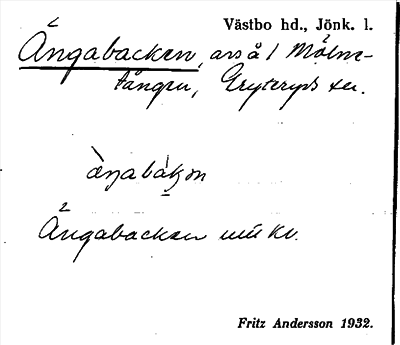 Västbo hd., Jönk. l.
Ångabacken, avs å 1 Mölne-
tången, Gryteryds sn.
àŋabák̬ən
Ångabacken
Fritz Andersson 1932.